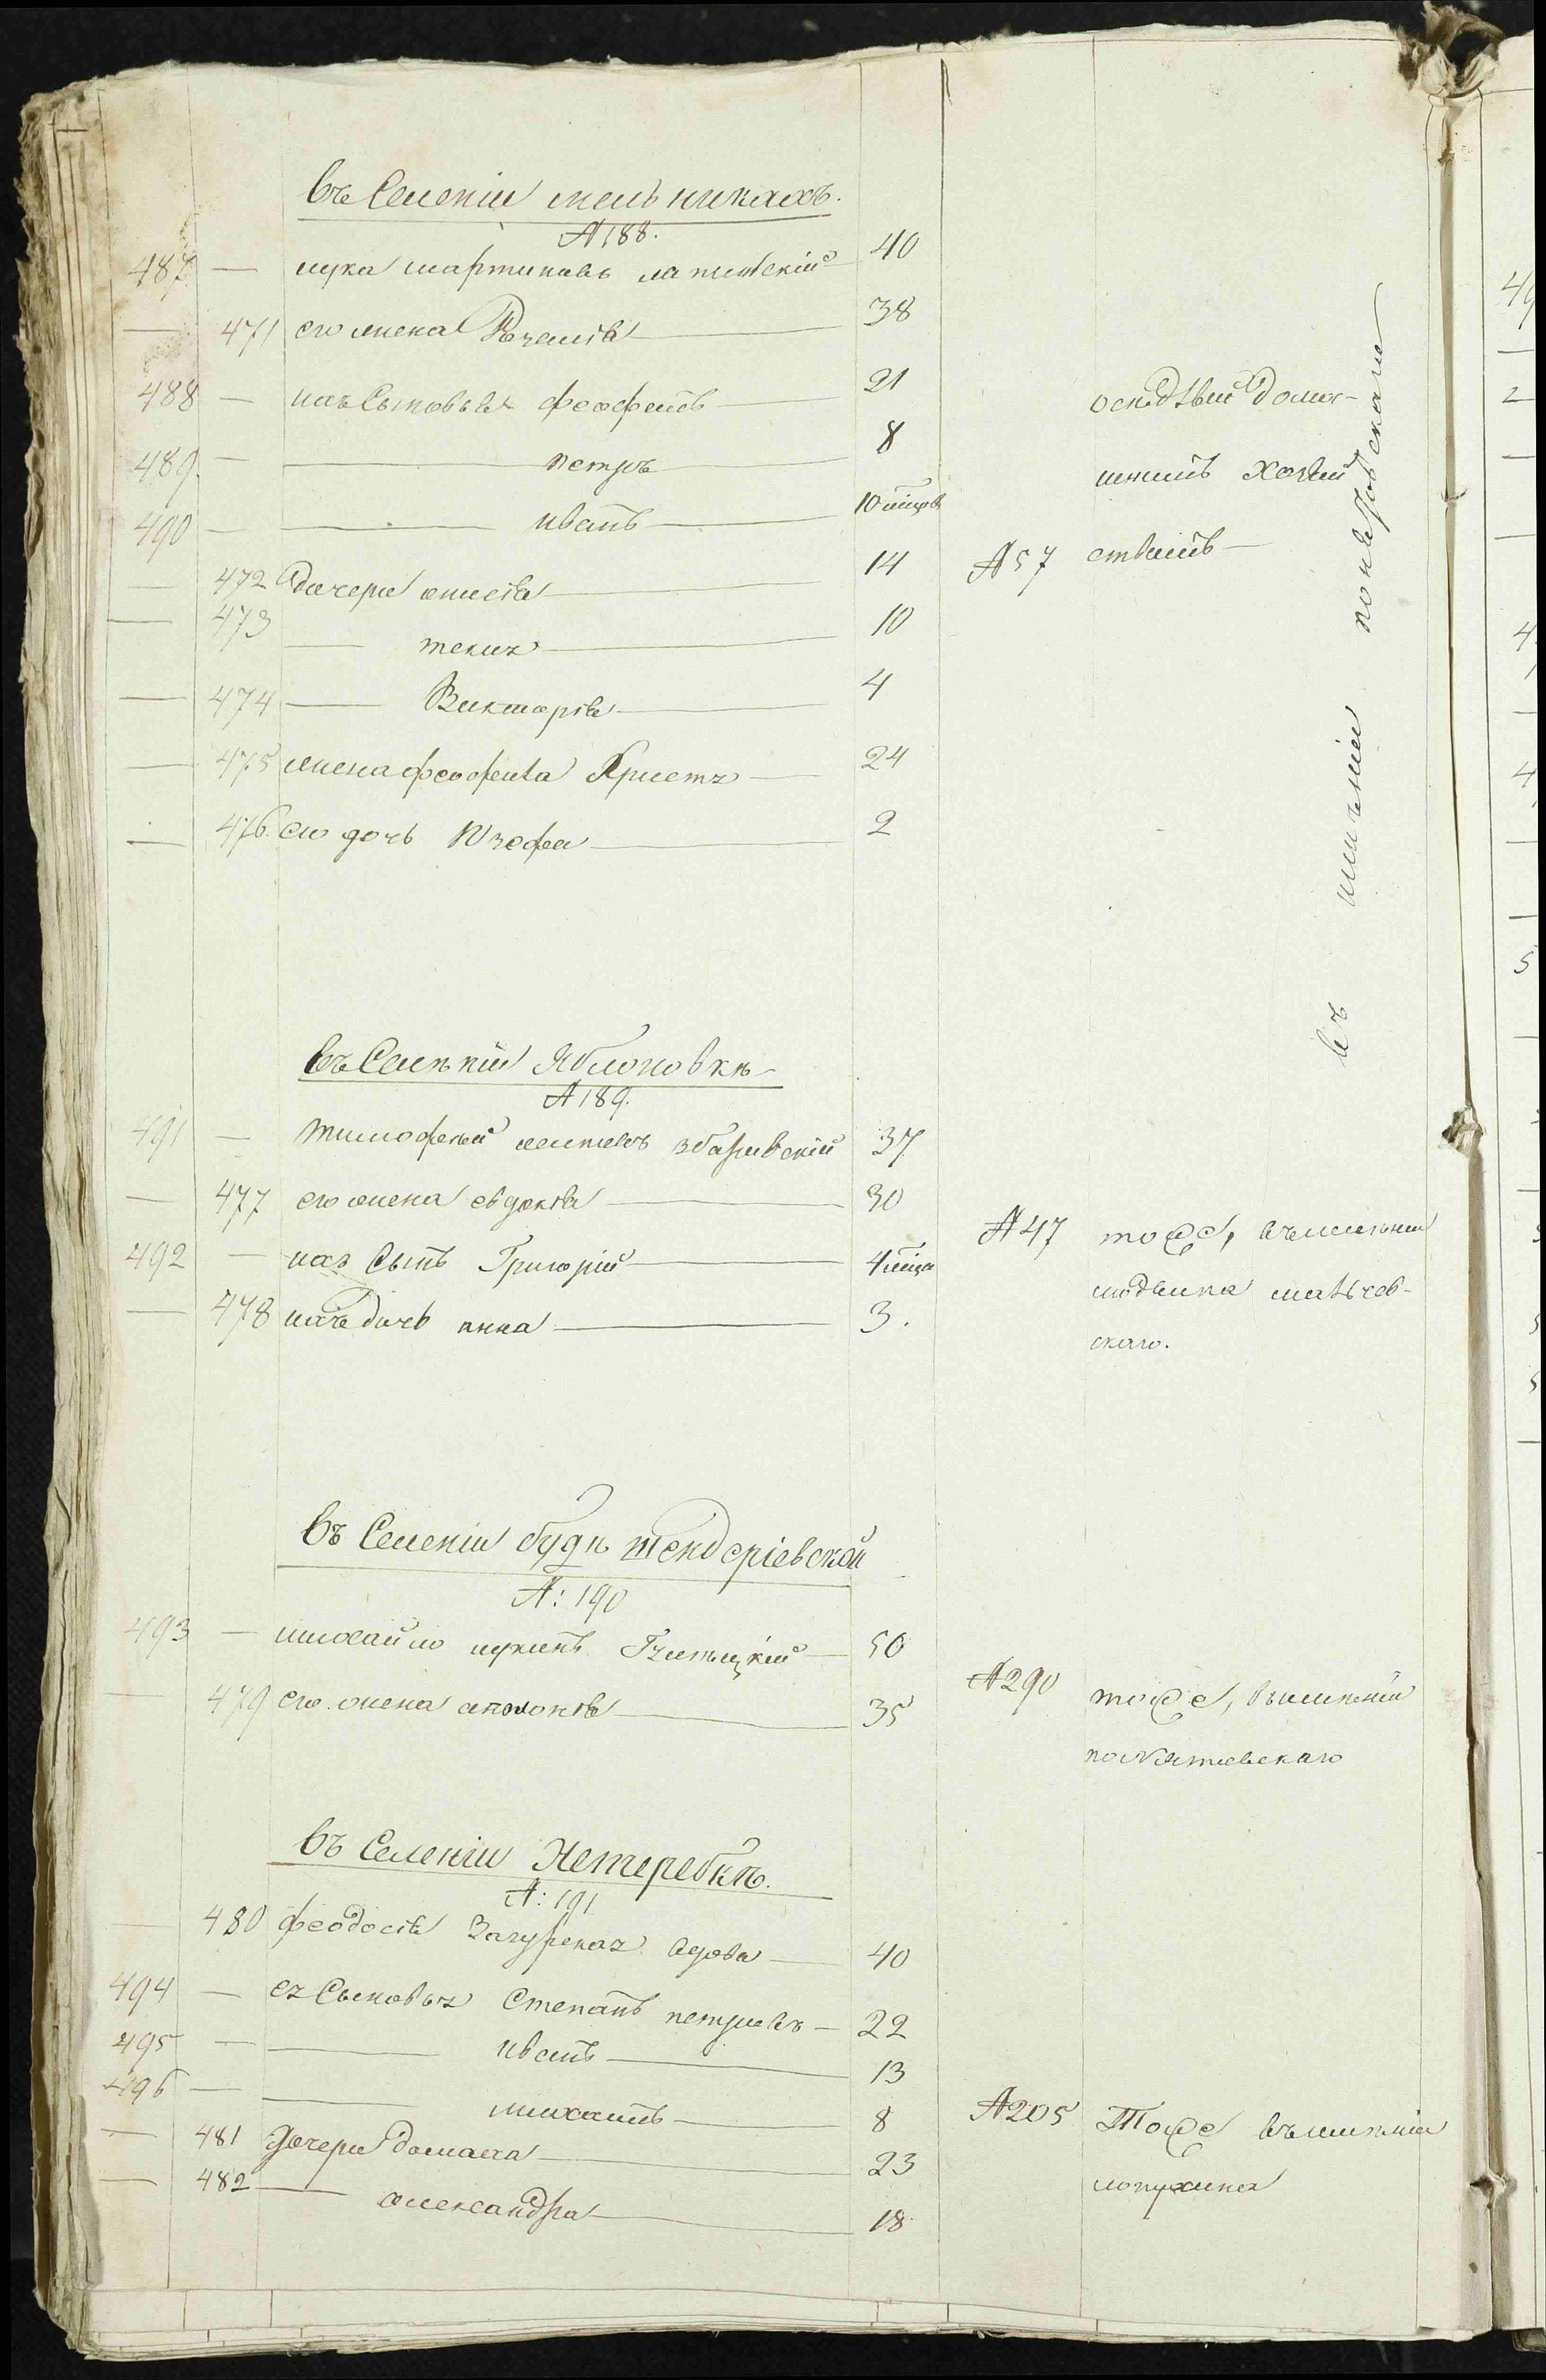 въ Селеніи мельникахъ.
№ 188.
487 — лука мартиновъ 40
— 471 его жена 38
488 — ихъ Сыновья феофилъ 21
489 — петръ 8
490 — иванъ 10 мѣсцовъ
— 472 дочери анисія 14
— 473 текля 10
— 474 Викторія 4
— 475 жена феофила Христя 24
— 476. его дочь Юзефа 2
№ 57
осѣдлый домаш-
нимъ хозяй
ствомъ
въ имѣніи
въ Селеніи Яблоновкѣ
№ 189.
491 — тимофей збаривскій 37
— 477 его жена евдокія 30
492 — ихъ Сынъ Григорій 4 мѣсца
— 478 ихъ дочь анна 3.
№ 47 тоже, въ имѣніи
скаго.
въ Селеніи будѣ тендеріевской
№: 190
493 — михайло лукинъ 50
— 479 его жена аполонія 35
№ 290 тоже, въ имѣніи
въ Селеніи Нетеребкѣ.
№: 191
— 480 феодосія Загурская вдова 40
494 — ея Сыновья Степанъ петровъ — 22
495 — иванъ 13
496 — михаилъ 8
— 481 дочери домаха 23
— 482 александра 18
№ 205 Тоже въ имѣніи
лопухина